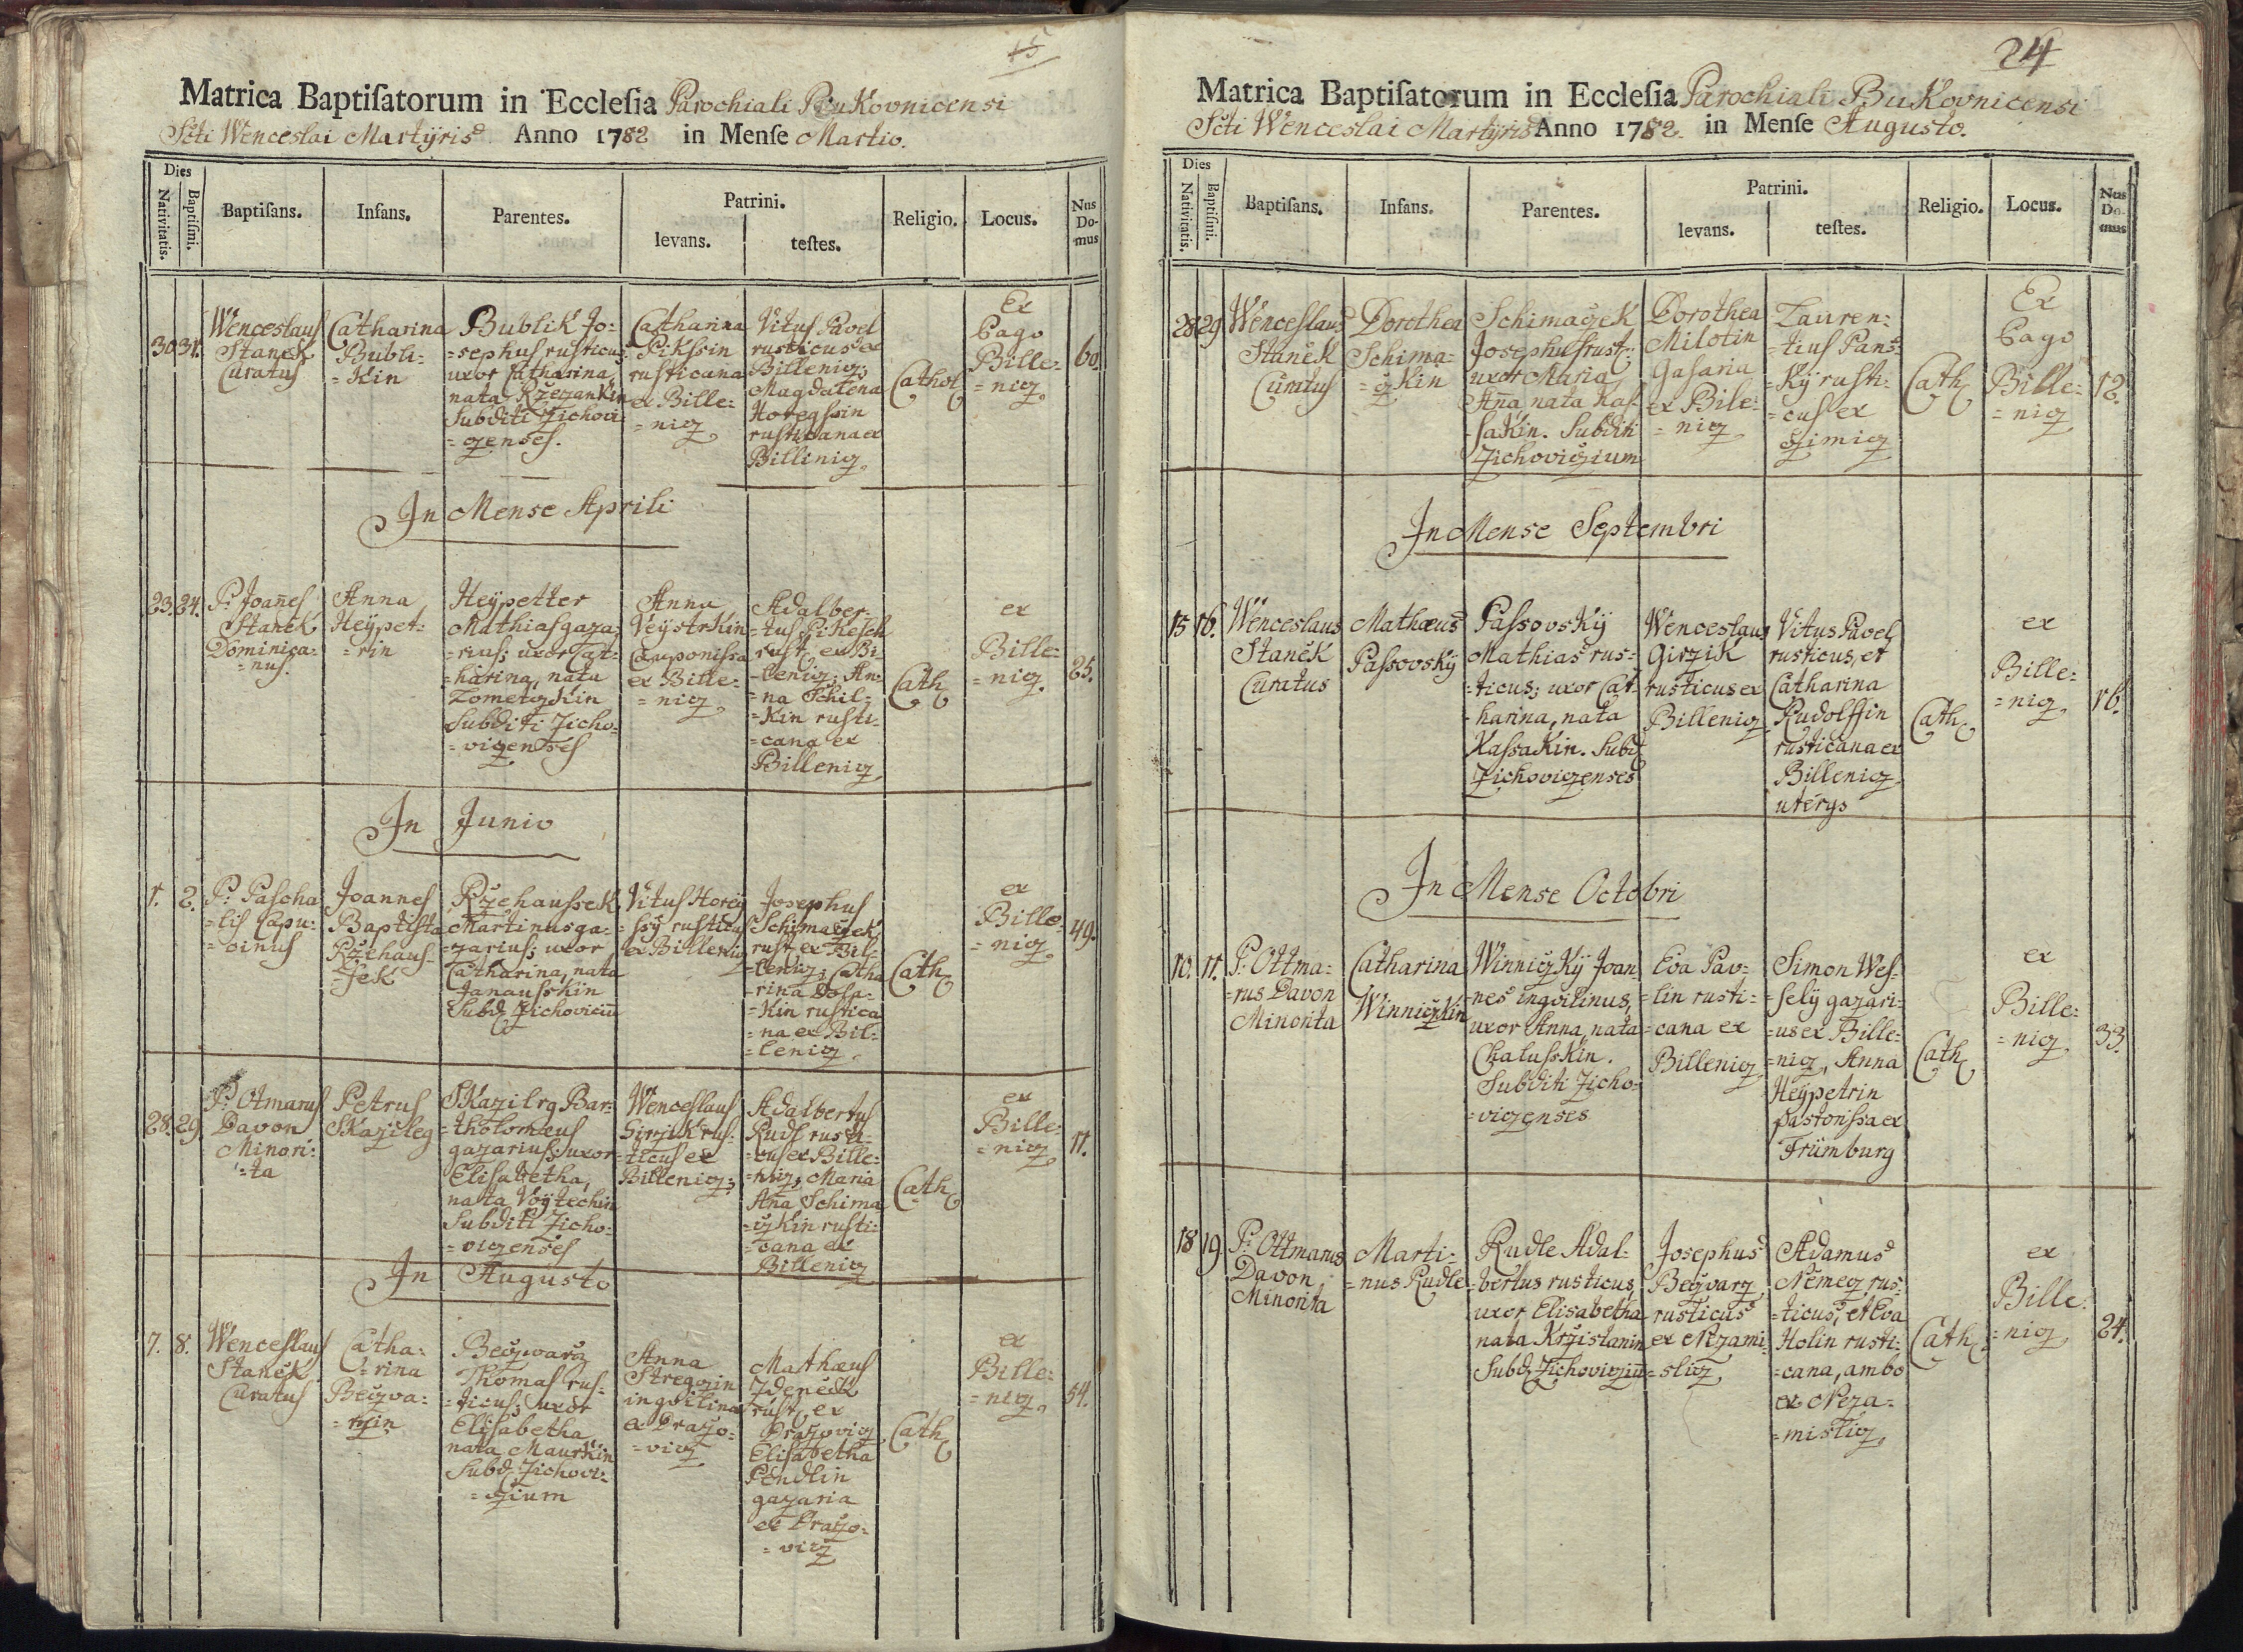 15
Matrica Baptiſatorum in Eccleſia Parochiali Bukovnicensi
Scti Wenceslai Martÿris Anno 1782 in Menſe Martio.
Dies
Nativitatis.
Baptiſmi.
Baptiſans.
Infans.
Parentes.
Patrini.
levans.
teſtes.
Religio.
Locus.
Nus
Do-
mus
30
31.
Wenceslaus
Stanek
Curatus
Catharina
Bubli:
=kin
Bublik Jo:
=sephus, rusticus;
uxor Catharina
nata Rzezankin
Subditi Zichovi
=zenses.
Catharina
Pikssin
rusticana
ex Bille:
=nicz
Vitus Pavel
rusticus ex
Billenicz;
Magdalena
Horegssin
rusticana ex
Billinicz
Cathol
Ex
Pago
Bille:
=nicz
60.
In Mense Aprili
23.
24.
P: Joañes
Stanek
Dominica:
=nus.
Anna
Heÿpet:
=rin
Heÿpetter
Mathias gaza
=rius; uxor Cat:
=harina, nata
Zometzkin
Subditi Zicho:
=vizenses
Anna
Veÿstrkin
Cauponissa
ex Bille:
=nicz
Adalber:
=tus Pikesch
rust, ex Bi
=lenicz; An:
=na Schil:
=kin rusti:
=cana ex
Billenicz
Cath
ex
Bille:
=nicz
25.
In Junio
1.
2.
P: Pascha
=lis Capu:
=cinus
Joannes
Baptista
Rzehaus
=sek
Rzehaussek
Martinus ga:
=zarius; uxor
Catharina, nata
Janausskin
Subd, Zichoviciũ
Vitus Horeg
=ssÿ rusticus
ex Billenicz
Josephus
Schimaczek
rust, ex Bil:
=lenicz; Catha
=rina Dosa:
=kin rustica
=na ex Bil:
=lenicz
Cath
ex
Bille:
=nicz
49.
28.
29.
P: Otmarus
Davon
Minori:
=ta
Petrus
Skazileg
Skazilrg Bar:
=tholomæus
gazarius; uxor
Elisabetha,
nata Voÿtechin
Subditi Zicho:
=vizenses
Wenceslaus
Girzik rus:
=ticus ex
Billenicz;
Adalbertus
Rudl rusti:
=cus ex Bille:
=nicz; Maria
Aña Schima
=czkin rusti:
=cana ex
Billenicz
Cath
ex
Bille:
=nicz
11.
In Augusto
7.
8.
Wenceslaus
Stanek
Curatus
Catha:
=rina
Beczva:
=rzin
Beczwarz
Thomas rus:
=ticus; uxor
Elisabetha
nata Maurkin
Subd, Zichovi:
=czium
Anna
Stregczin
inqvilina
ex Drazo:
=vicz
Mathæus
Zdenèk
rust, ex
Drazovicz
Elisabetha
Pèndlin
gazaria
ex Drazo:
=vicz
Cath
ex
Bille:
=nicz
54.
24
Matrica Baptiſatorum in Eccleſia Parochiali Bukovnicensi
Scti Wenceslai Martÿris Anno 1782. in Menſe Augusto.
Dies
Nativitatis.
Baptiſmi.
Baptiſans.
Infans.
Parentes.
Patrini.
levans.
teſtes.
Religio.
Locus.
Nus
Do-
mus
28
29
Wenceslaus
Stanek
Curatus
Dorothea
Schima:
=czkin
Schimaczek
Josephus rust:
uxor Maria
Aña nata Kas
=sakin. Subditi
Zichoviczium
Dorothea
Milotin
gasaria
ex Bile:
=nicz
Lauren:
=tius Pans:
=kÿ rusti:
=cus ex
czimicz
Cath
Ex
Pago
Bille:
=nicz
12.
In Mense Septembri
15
16.
Wenceslaus
Stanèk
Curatus
Mathæus
Passovskÿ
Passovskÿ
Mathias rus:
=ticus; uxor Cat:
=harina, nata
Kassakin. Subd
Zichovizenses
Wenceslaus
Girzik
rusticus ex
Billenicz
Vitus Pavel
rusticus, et
Catharina
Rudolffin
rusticana ex
Billenicz
Cath
ex
Bille:
=nicz
16.
In Mense Octobri
10.
11.
P: Ottma:
=rus Davon
Minorita
Catharina
Winniczkin
Winniczkÿ Joan
=nes inqvilinus,
uxor Anna, nata
Chalusskin.
Subditi Zicho:
=vizenses
Eva Pav:
=lin rusti:
=cana ex
Billenicz
Simon Wes:
=selÿ gazari:
=us ex Bille:
=nicz, Anna
Heÿpetrin
pastorissa ex
Frümburg
Cath
ex
Bille:
=nicz
33.
18
19
P: Ottmarus
Davon
Minorita
Marti:
=nus Rudle
Rudle Adal:
=bertus rusticus,
uxor Elisabetha
nata Krzistanin
Subd, Zichovicziũ
Josephus
Beczvarz
rusticus
ex Nezami:
=slicz
Adamus
Nèmecz rus:
=ticus, et Eva
Holin rusti:
=cana, ambo
ex Neza:
=mislicz
Cath
ex
Bille:
=nicz
24.